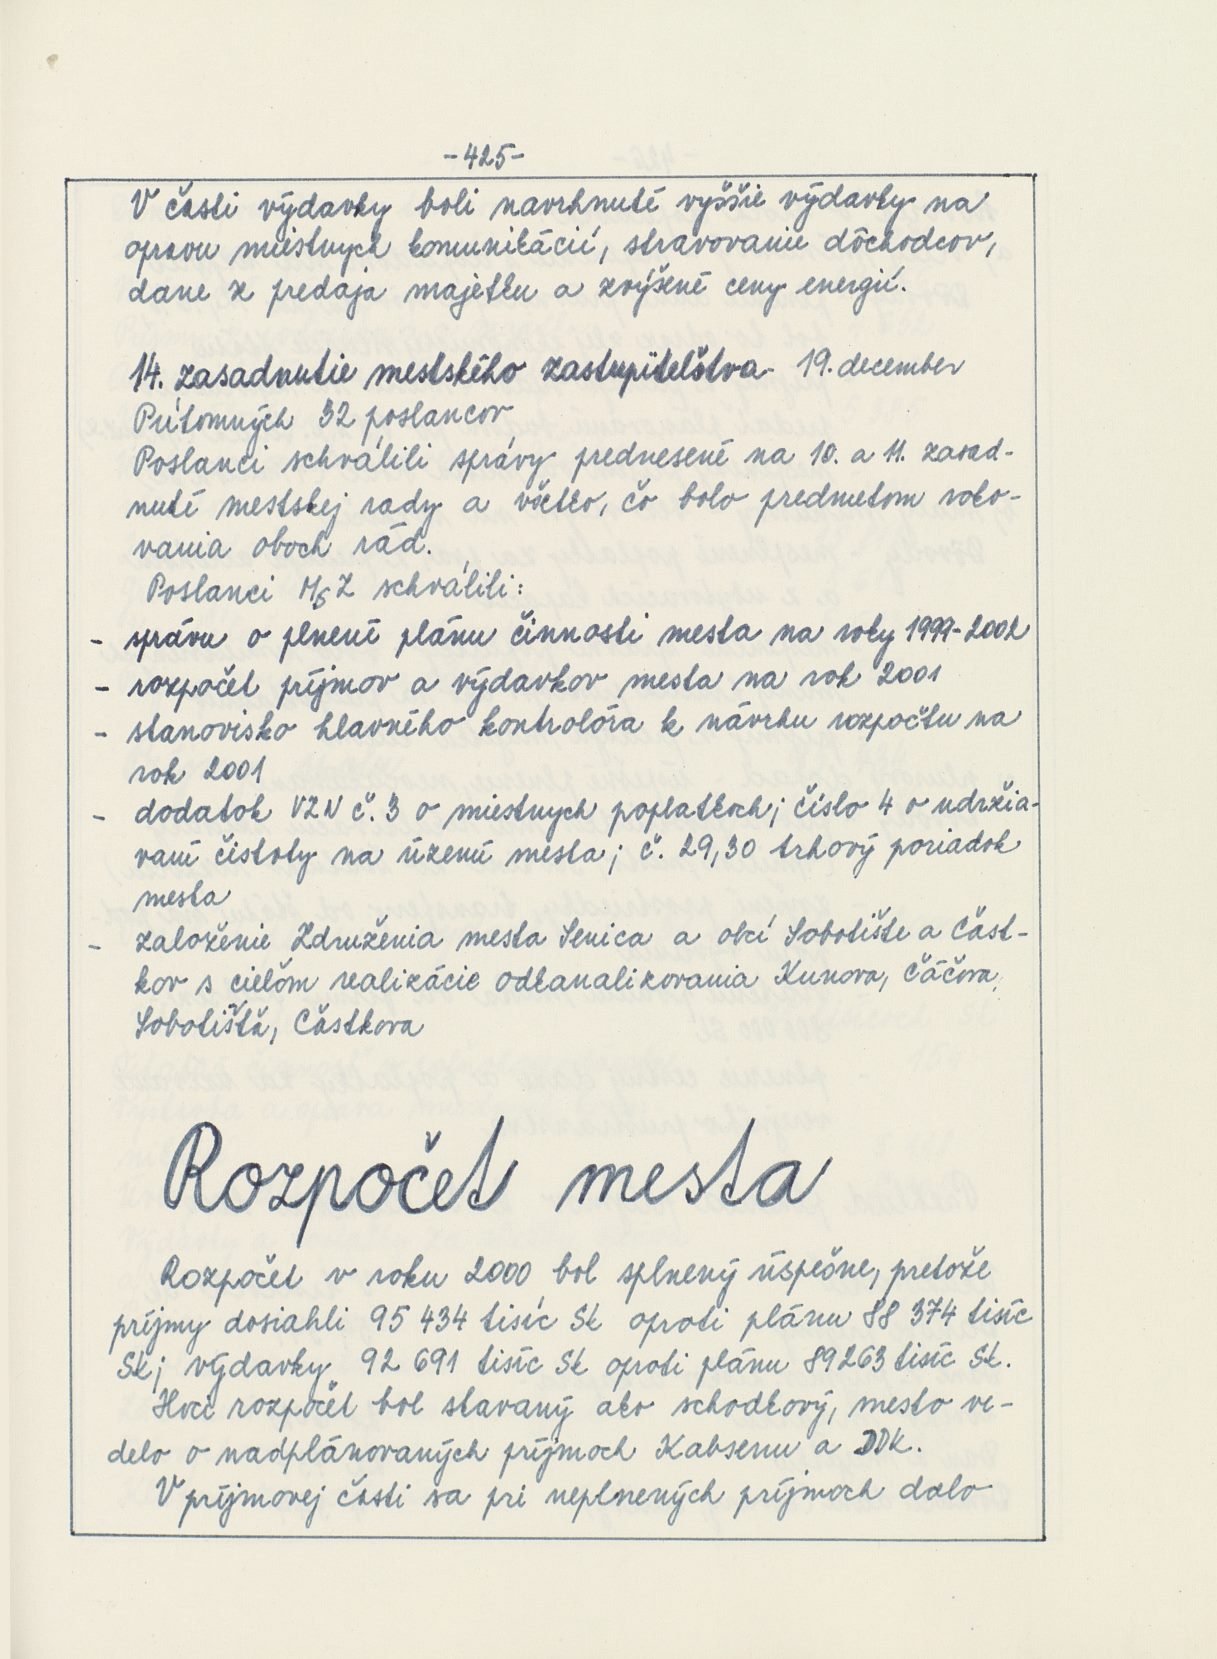 -425-
V časti výdavky boli navrhnuté vyššie výdavky na
opravu miestnych komunikácií, stravovanie dôchodcov,
dane z predaja majetku a zvýšené ceny energií.
14. zasadnutie mestského zastupiteľstva - 19. december
Prítomných 32 poslancov
Poslanci schválili správy prednesené na 10. a 11. zasad-
nutí mestskej rady a všetko, čo bolo predmetom roko-
vania oboch rád.
Poslanci MsZ schválili:
- správu o plnení plánu činnosti mesta na roky 1999-2002
- rozpočet príjmov a výdavkov mesta na rok 2001
- stanovisko hlavného kontrolóra k návrhu rozpočtu na
rok 2001
- dodatok VZN č. 3 o miestnych poplatkoch; číslo 4 o udržia-
vaní čistoty na území mesta; č. 29,30 trhový poriadok
mesta
- založenie Združenia mesta Senica a obcí Sobotište a Část-
kov s cieľom realizácie odkanalizovania Kunova, Čáčova,
Sobotišťa, Částkova
Rozpočet mesta
Rozpočet v roku 2000 bol splnený úspešne, pretože
príjmy dosiahli 95 434 tisíc Sk oproti plánu 88 374 tisíc
Sk; výdavky 92 691 tisíc Sk oproti plánu 89263 tisíc Sk.
Hoci rozpočet bol stavaný ako schodkový, mesto ve-
delo o nadplánovaných príjmoch Kabsenu a DDK.
V príjmovej časti sa pri neplnených príjmoch dalo